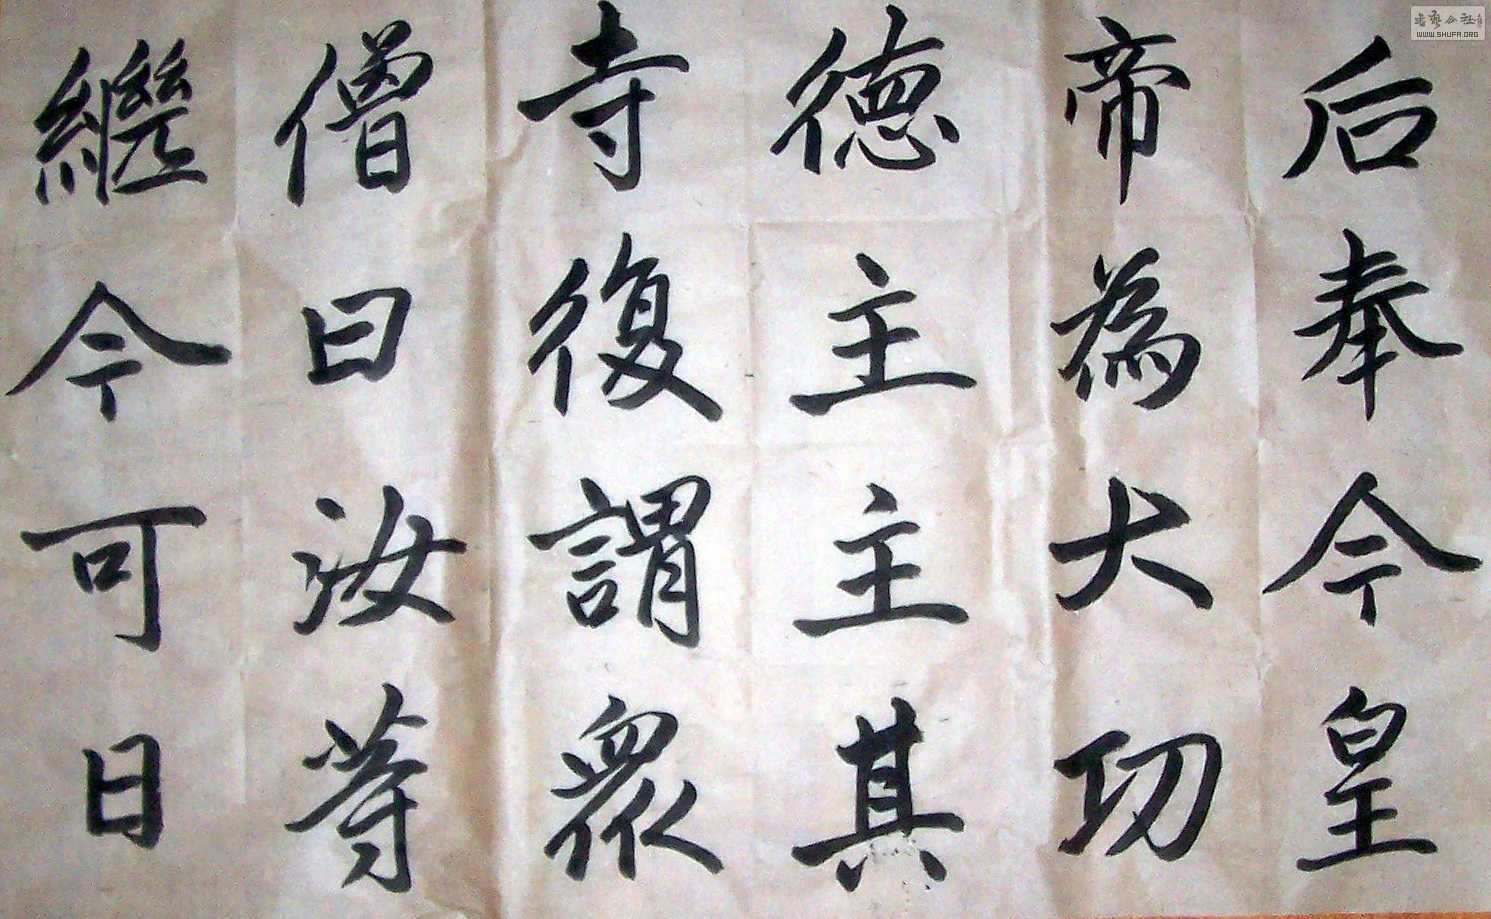 后奉今皇
帝為大功
德主主其
寺復謂眾
僧曰汝等
繼今可日
书艺公社
WWW.SHUFA.ORG